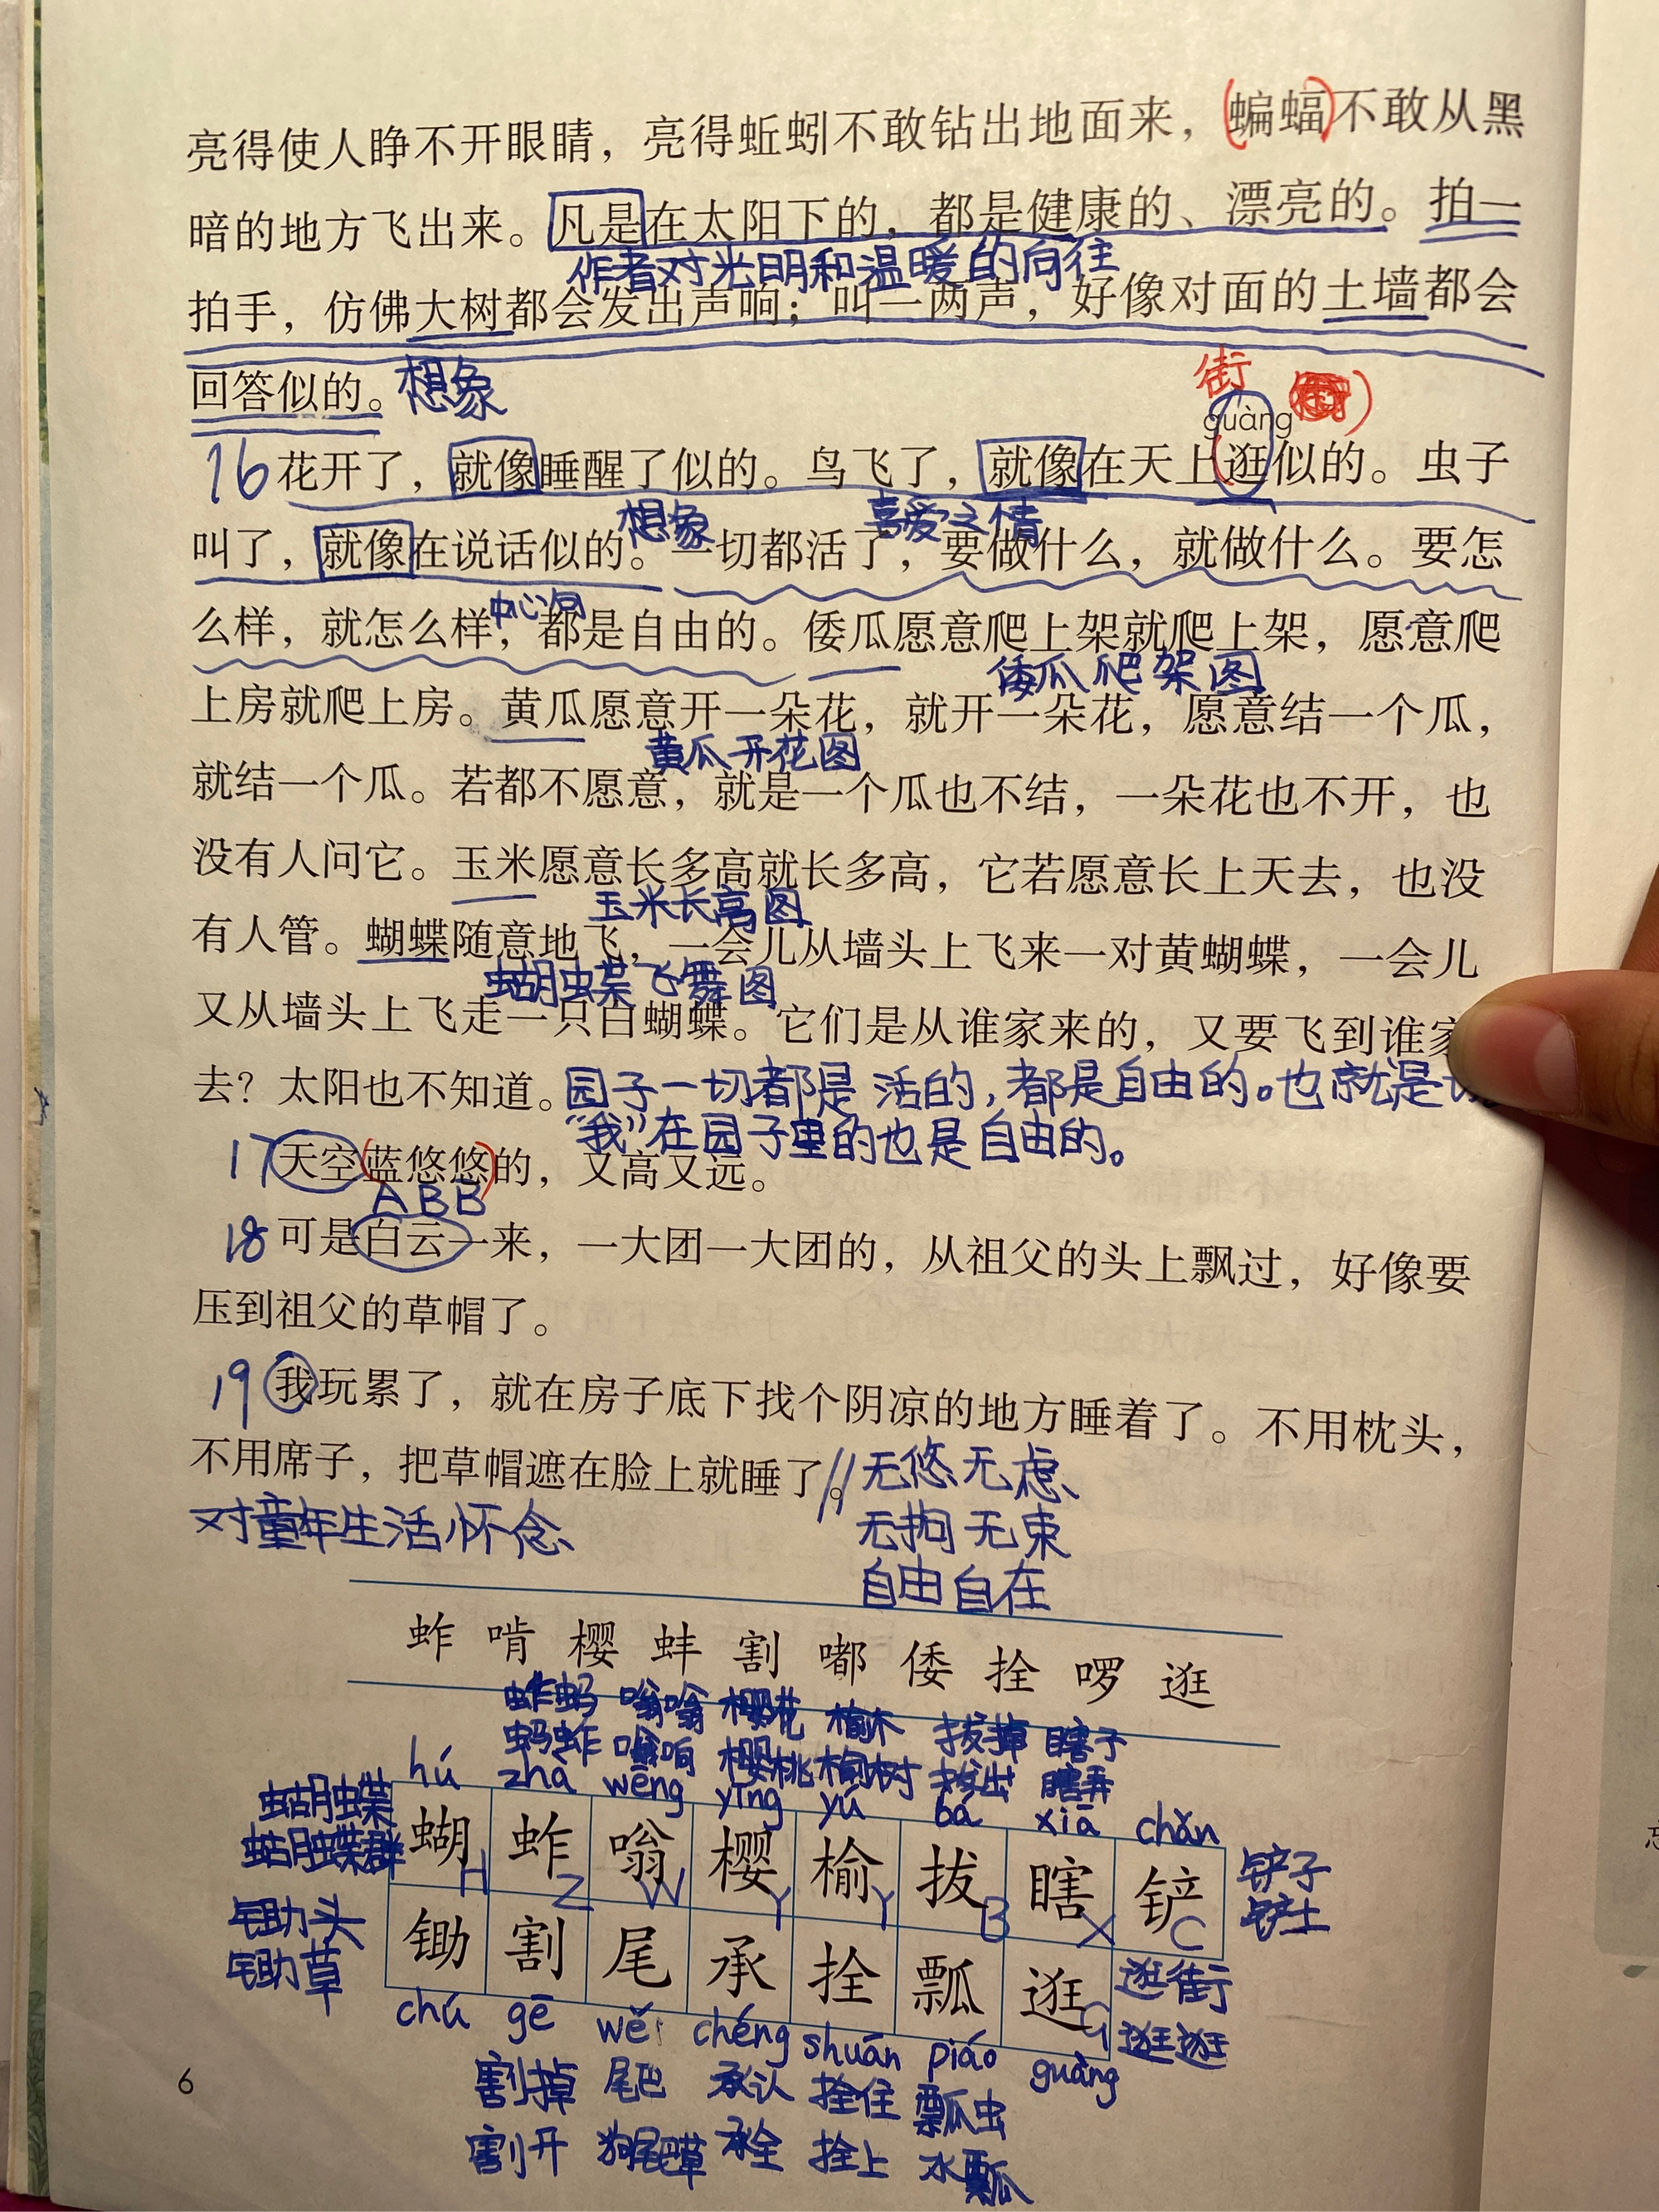 亮得使人睁不开眼睛，亮得蚯蚓不敢钻出地面来，(蝙蝠)不敢从黑
暗的地方飞出来。凡是在太阳下的，都是健康的、漂亮的。拍一
作者对光明和温暖的向往
拍手，仿佛大树都会发出声响；叫一两声，好像对面的土墙都会
回答似的。想象
街
guàng
16 花开了，就像睡醒了似的。鸟飞了，就像在天上(逛似的。虫子
想象 喜爱之情
叫了，就像在说话似的。一切都活了，要做什么，就做什么。要怎
中心句
么样，就怎么样，都是自由的。倭瓜愿意爬上架就爬上架，愿意爬
倭瓜爬架图
上房就爬上房。黄瓜愿意开一朵花，就开一朵花，愿意结一个瓜，
黄瓜开花图
就结一个瓜。若都不愿意，就是一个瓜也不结，一朵花也不开，也
没有人问它。玉米愿意长多高就长多高，它若愿意长上天去，也没
玉米长高图
有人管。蝴蝶随意地飞，一会儿从墙头上飞来一对黄蝴蝶，一会儿
蝴蝶飞舞图
又从墙头上飞走一只白蝴蝶。它们是从谁家来的，又要飞到谁家
去？太阳也不知道。园子一切都是活的，都是自由的。也就是
“我”在园子里的也是自由的。
17 天空(蓝悠悠)的，又高又远。
ABB
18 可是白云一来，一大团一大团的，从祖父的头上飘过，好像要
压到祖父的草帽了。
19 我玩累了，就在房子底下找个阴凉的地方睡着了。不用枕头，
不用席子，把草帽遮在脸上就睡了。// 无悠无虑、
对童年生活怀念 无拘无束
自由自在
蚱 啃 樱 蚌 割 嘟 倭 拴 啰 逛
蚱蚂 嗡嗡 樱花 榆木 拔掉 瞎子
蚂蚱 嗡响 樱桃 榆树 拔出 瞎弄
hú zhà wēng yīng yú bá xiā chǎn
蝴蝶 蝴 蚱 嗡 樱 榆 拔 瞎 铲 铲子
蝴蝶群 H Z W Y Y B X C 铲土
锄头 锄 割 尾 承 拴 瓢 逛 逛街
锄草 G 逛逛
chú gē wěi chéng shuān piáo guàng
割掉 尾巴 承认 拴住 瓢虫
割开 狗尾草 承全 拴上 水瓢
6